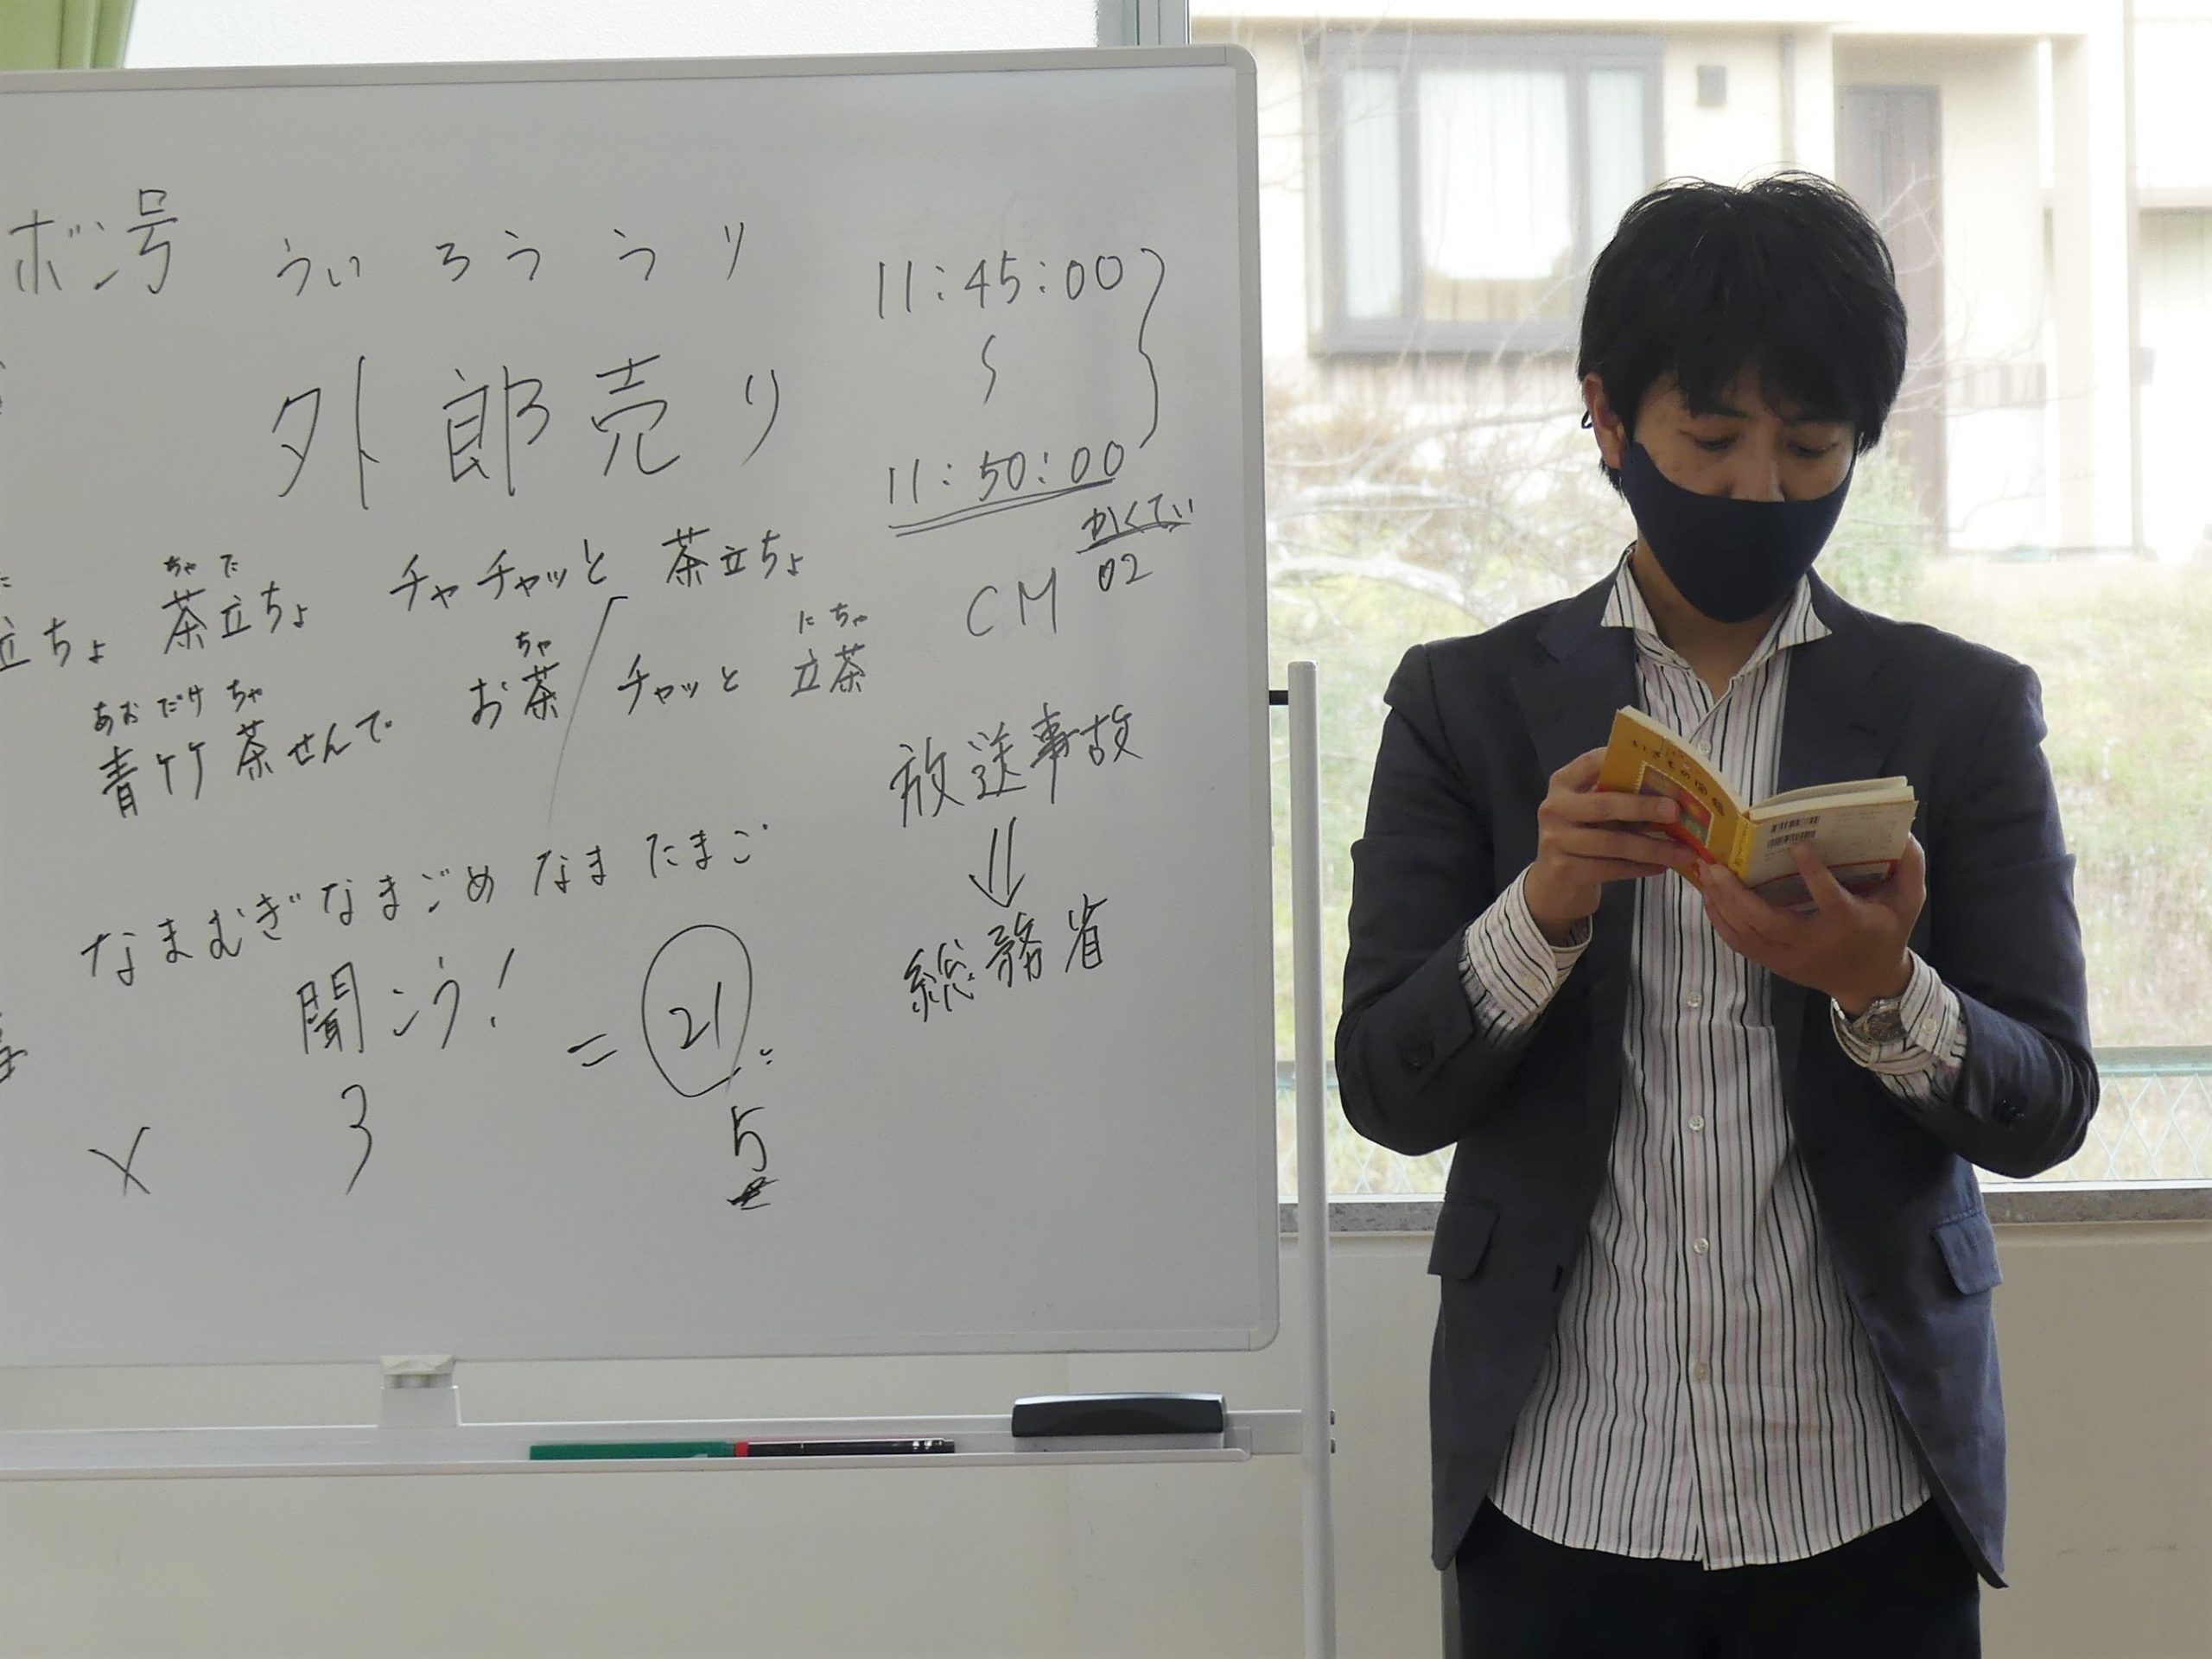 ボン号
ういろううり
外郎売り
ちゃ た
立ちょ 茶立ちょ チャチャッと 茶立ちょ
あおだけちゃ ちゃ にちゃ
青竹茶せんで お茶 チャッと 立茶
なまむぎなまごめなまたまご
聞こう!
= 21
× 3
5
11:45:00
11:50:00
かくてい
02
CM
放送事故
⇓
総務省